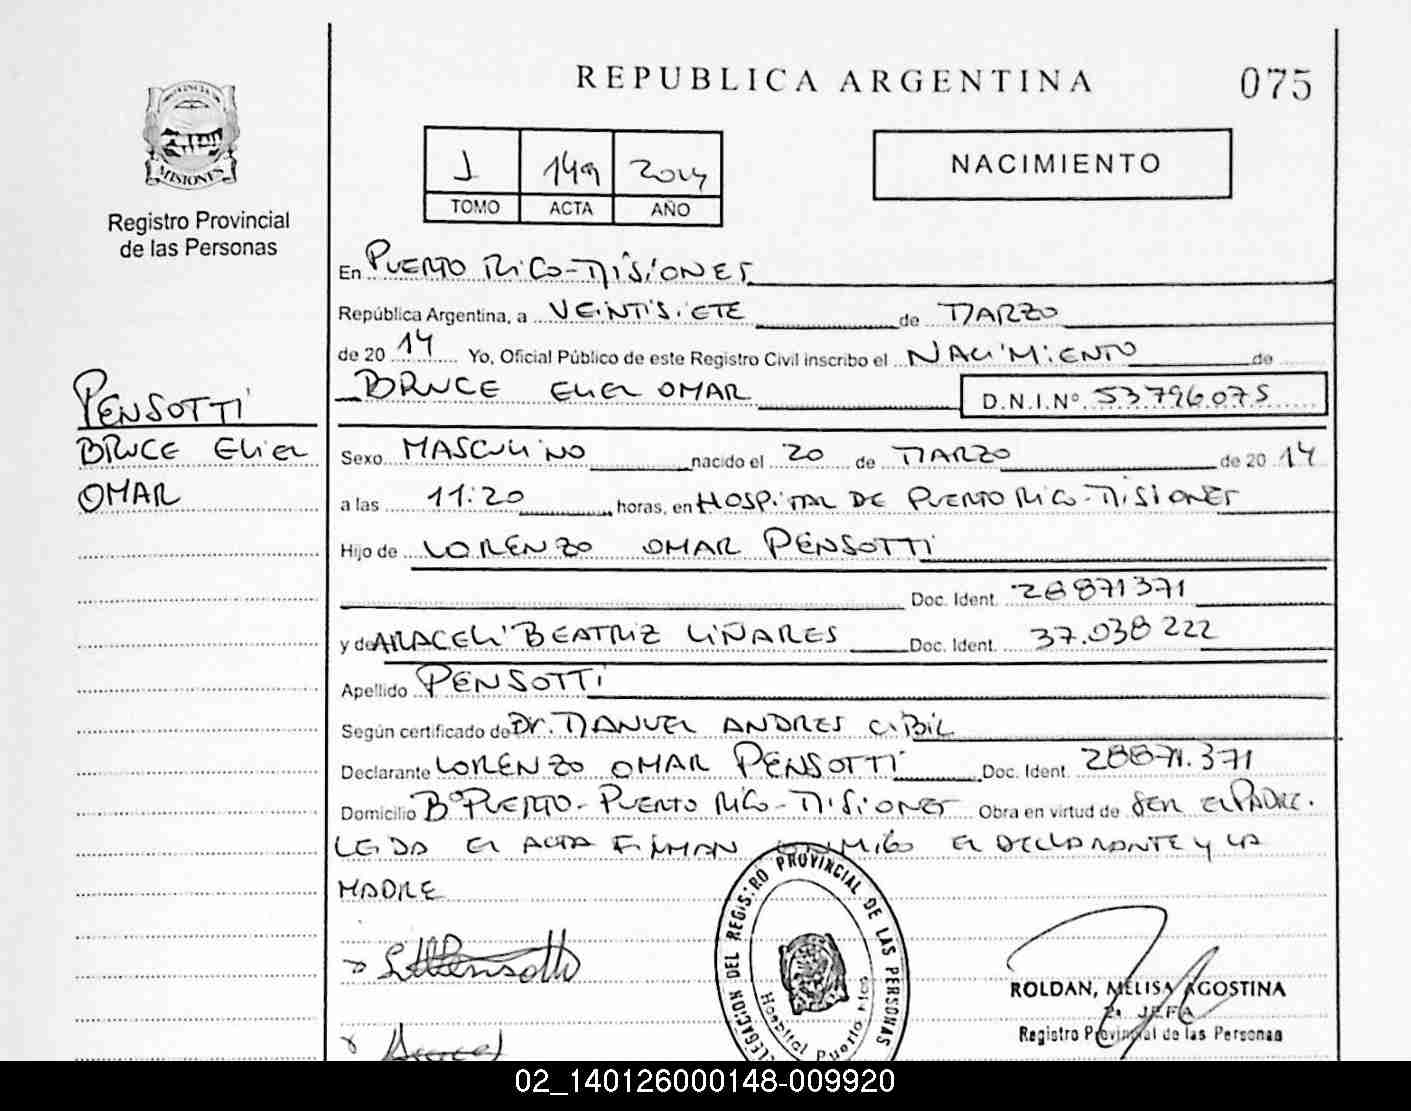 REPUBLICA ARGENTINA
075
PROVINCIA DE
MISIONES
Registro Provincial
de las Personas
1 149 2014
TOMO ACTA AÑO
NACIMIENTO
En PUERTO RICO-MISIONES
República Argentina, a VEINTISIETE de MARZO
de 20 14 Yo, Oficial Público de este Registro Civil inscribo el NACIMIENTO de
BRUCE ELIEL OMAR D.N.I.Nº 53.796.075
PENSOTTI
BRUCE ELIEL
OMAR
Sexo MASCULINO nacido el 20 de MARZO de 20 14
a las 11:20 horas, en HOSPITAL DE PUERTO RICO-MISIONES
Hijo de LORENZO OMAR PENSOTTI
Doc. Ident. 28871371
y de ARACELI BEATRIZ LIÑARES Doc. Ident. 37.038.222
Apellido PENSOTTI
Según certificado de Dr. MANUEL ANDRES CIBIL
Declarante LORENZO OMAR PENSOTTI Doc. Ident. 28871.371
Domicilio Bº PUERTO-PUERTO RICO-MISIONES Obra en virtud de SER EL PADRE.
LEIDA EL ACTA FIRMAN CONMIGO EL DECLARANTE y LA
MADRE
DELEGACION DEL REGISTRO PROVINCIAL DE LAS PERSONAS
Hospital Puerto
ROLDAN, MELISA AGOSTINA
2a JEFA
Registro Provincial de las Personas
02_140126000148-009920